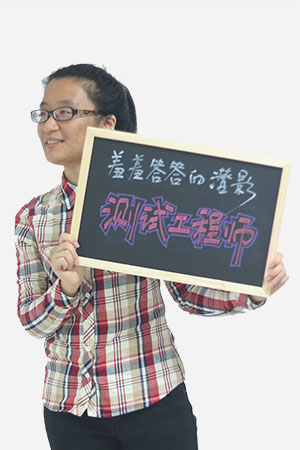 羞羞答答的滢影
测试工程师